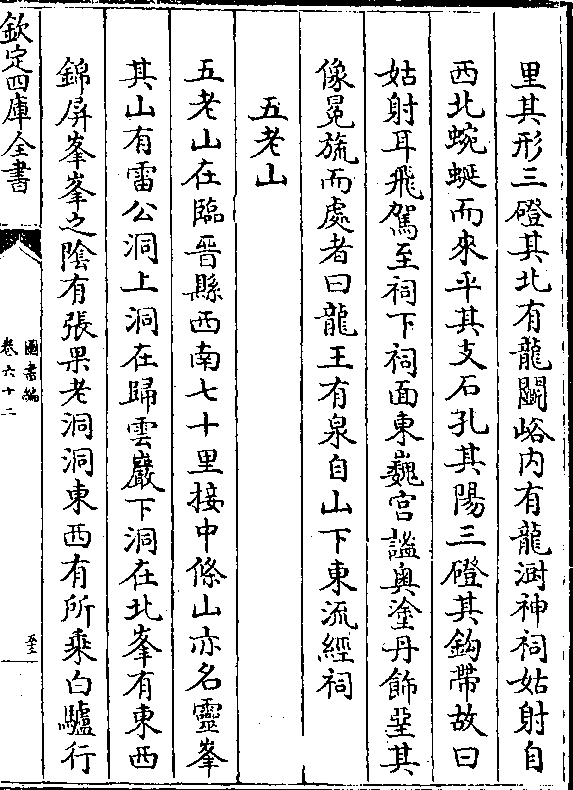 里其形三磴其北有龍闘峪内有龍澍神祠姑射自
西北蜿蜒而來平其支石孔其陽三磴其鈎帶故曰
姑射耳飛駕至祠下祠面東巍宫謐奥塗丹飾堊其
像冕旒而處者曰龍王有泉自山下東流經祠
五老山
五老山在臨晉縣西南七十里接中條山亦名靈峯
其山有雷公洞上洞在歸雲巖下洞在北峯有東西
錦屏峯峯之陰有張果老洞洞東西有所乗白驢行
欽定四庫全書
圖書編
卷六十二